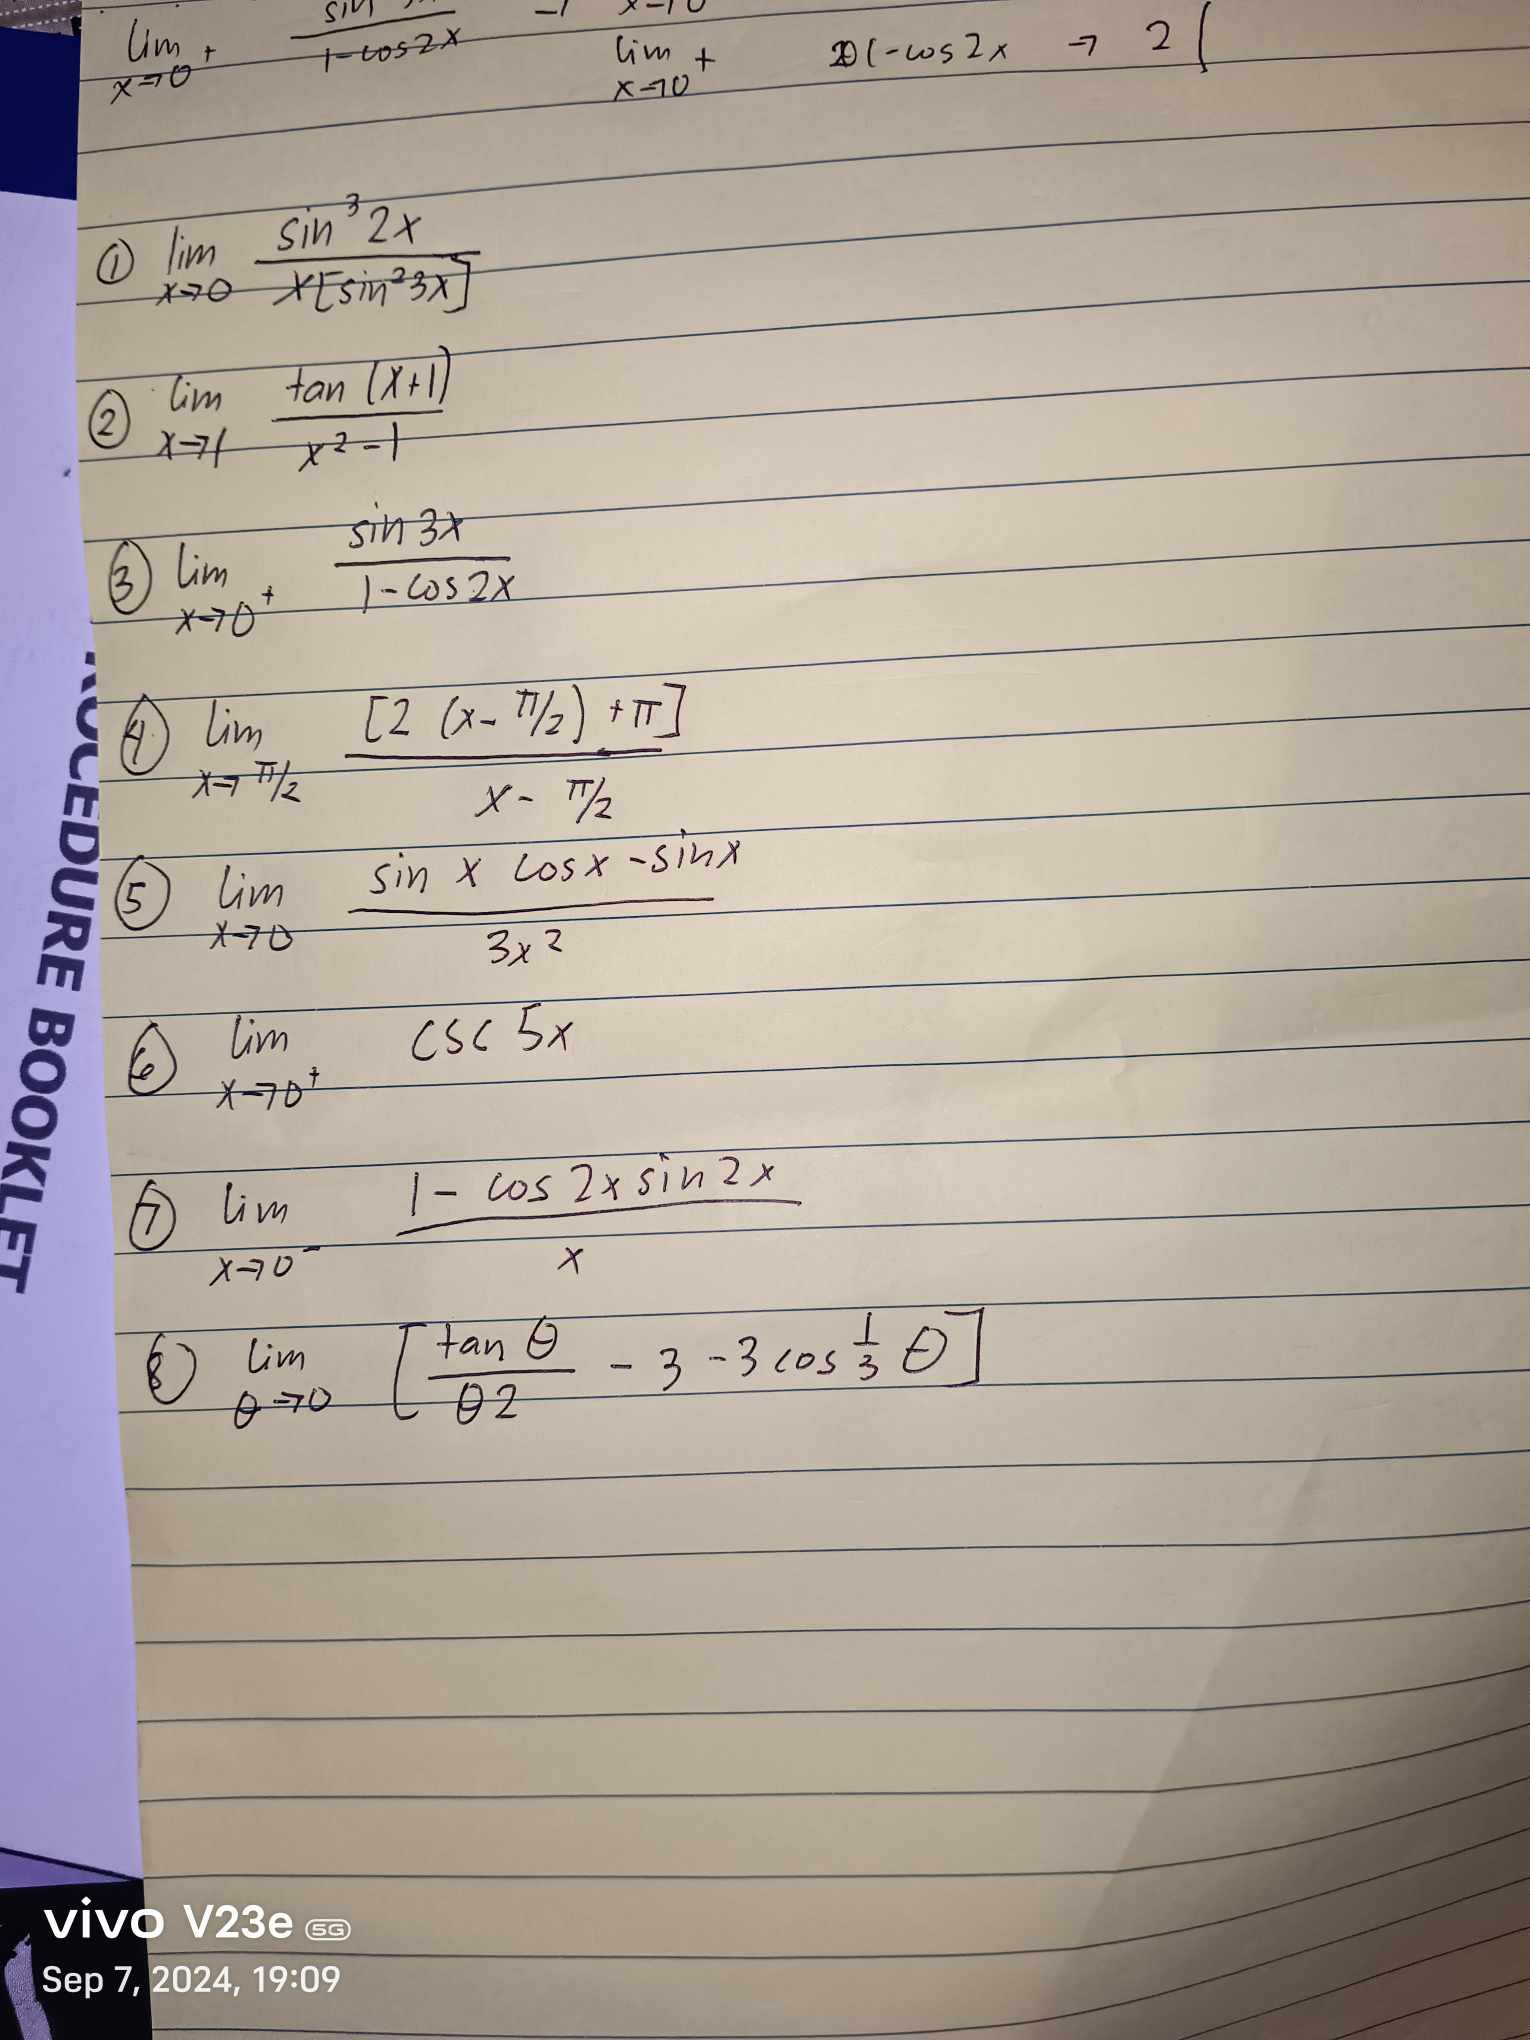 lim x→0+ sin 1-cos2x → x→0 lim x→0+ 1-cos2x → 2
① lim x→0 sin³2x / x[sin²3x]
② lim x→1 tan (x+1) / x²-1
③ lim x→0+ sin 3x / 1-cos2x
④ lim x→π/2 [2 (x-π/2) +π] / x-π/2
⑤ lim x→0 sin x cosx -sinx / 3x²
⑥ lim x→0+ csc 5x
⑦ lim x→0- 1- cos 2x sin 2x / x
⑧ lim θ→0 [tan θ / θ2 - 3 -3 cos 1/3 θ]
ROCEDURE BOOKLET
vivo V23e 5G
Sep 7, 2024, 19:09